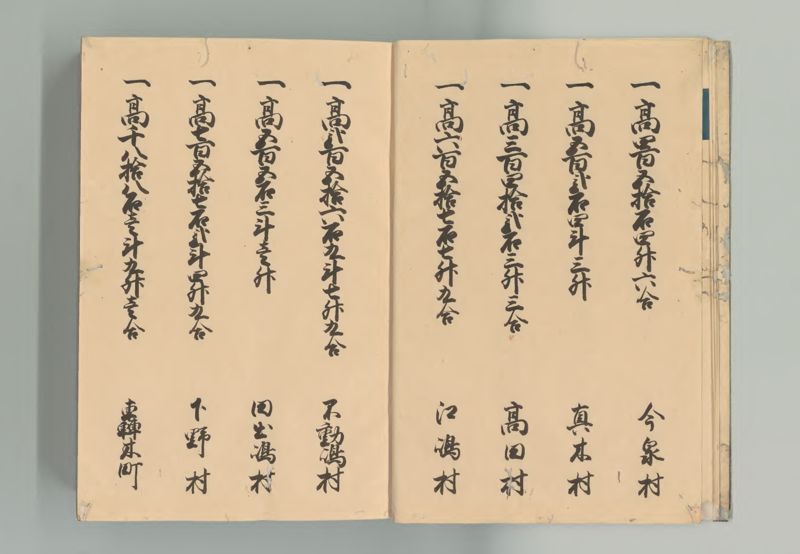 一高四百五拾石四升六合 今泉村
一高五百弐石四斗三升 真木村
一高三百四拾弐石三升三合 高田村
一高六百五拾七石七升九合 江嶋村
一高弐百五拾六石五斗七升九合 不動嶋村
一高五百五石三斗壱升 田出嶋村
一高七百五拾七石弐斗四升九合 下野村
一高千八拾八石壱斗九升壱合 轟木町